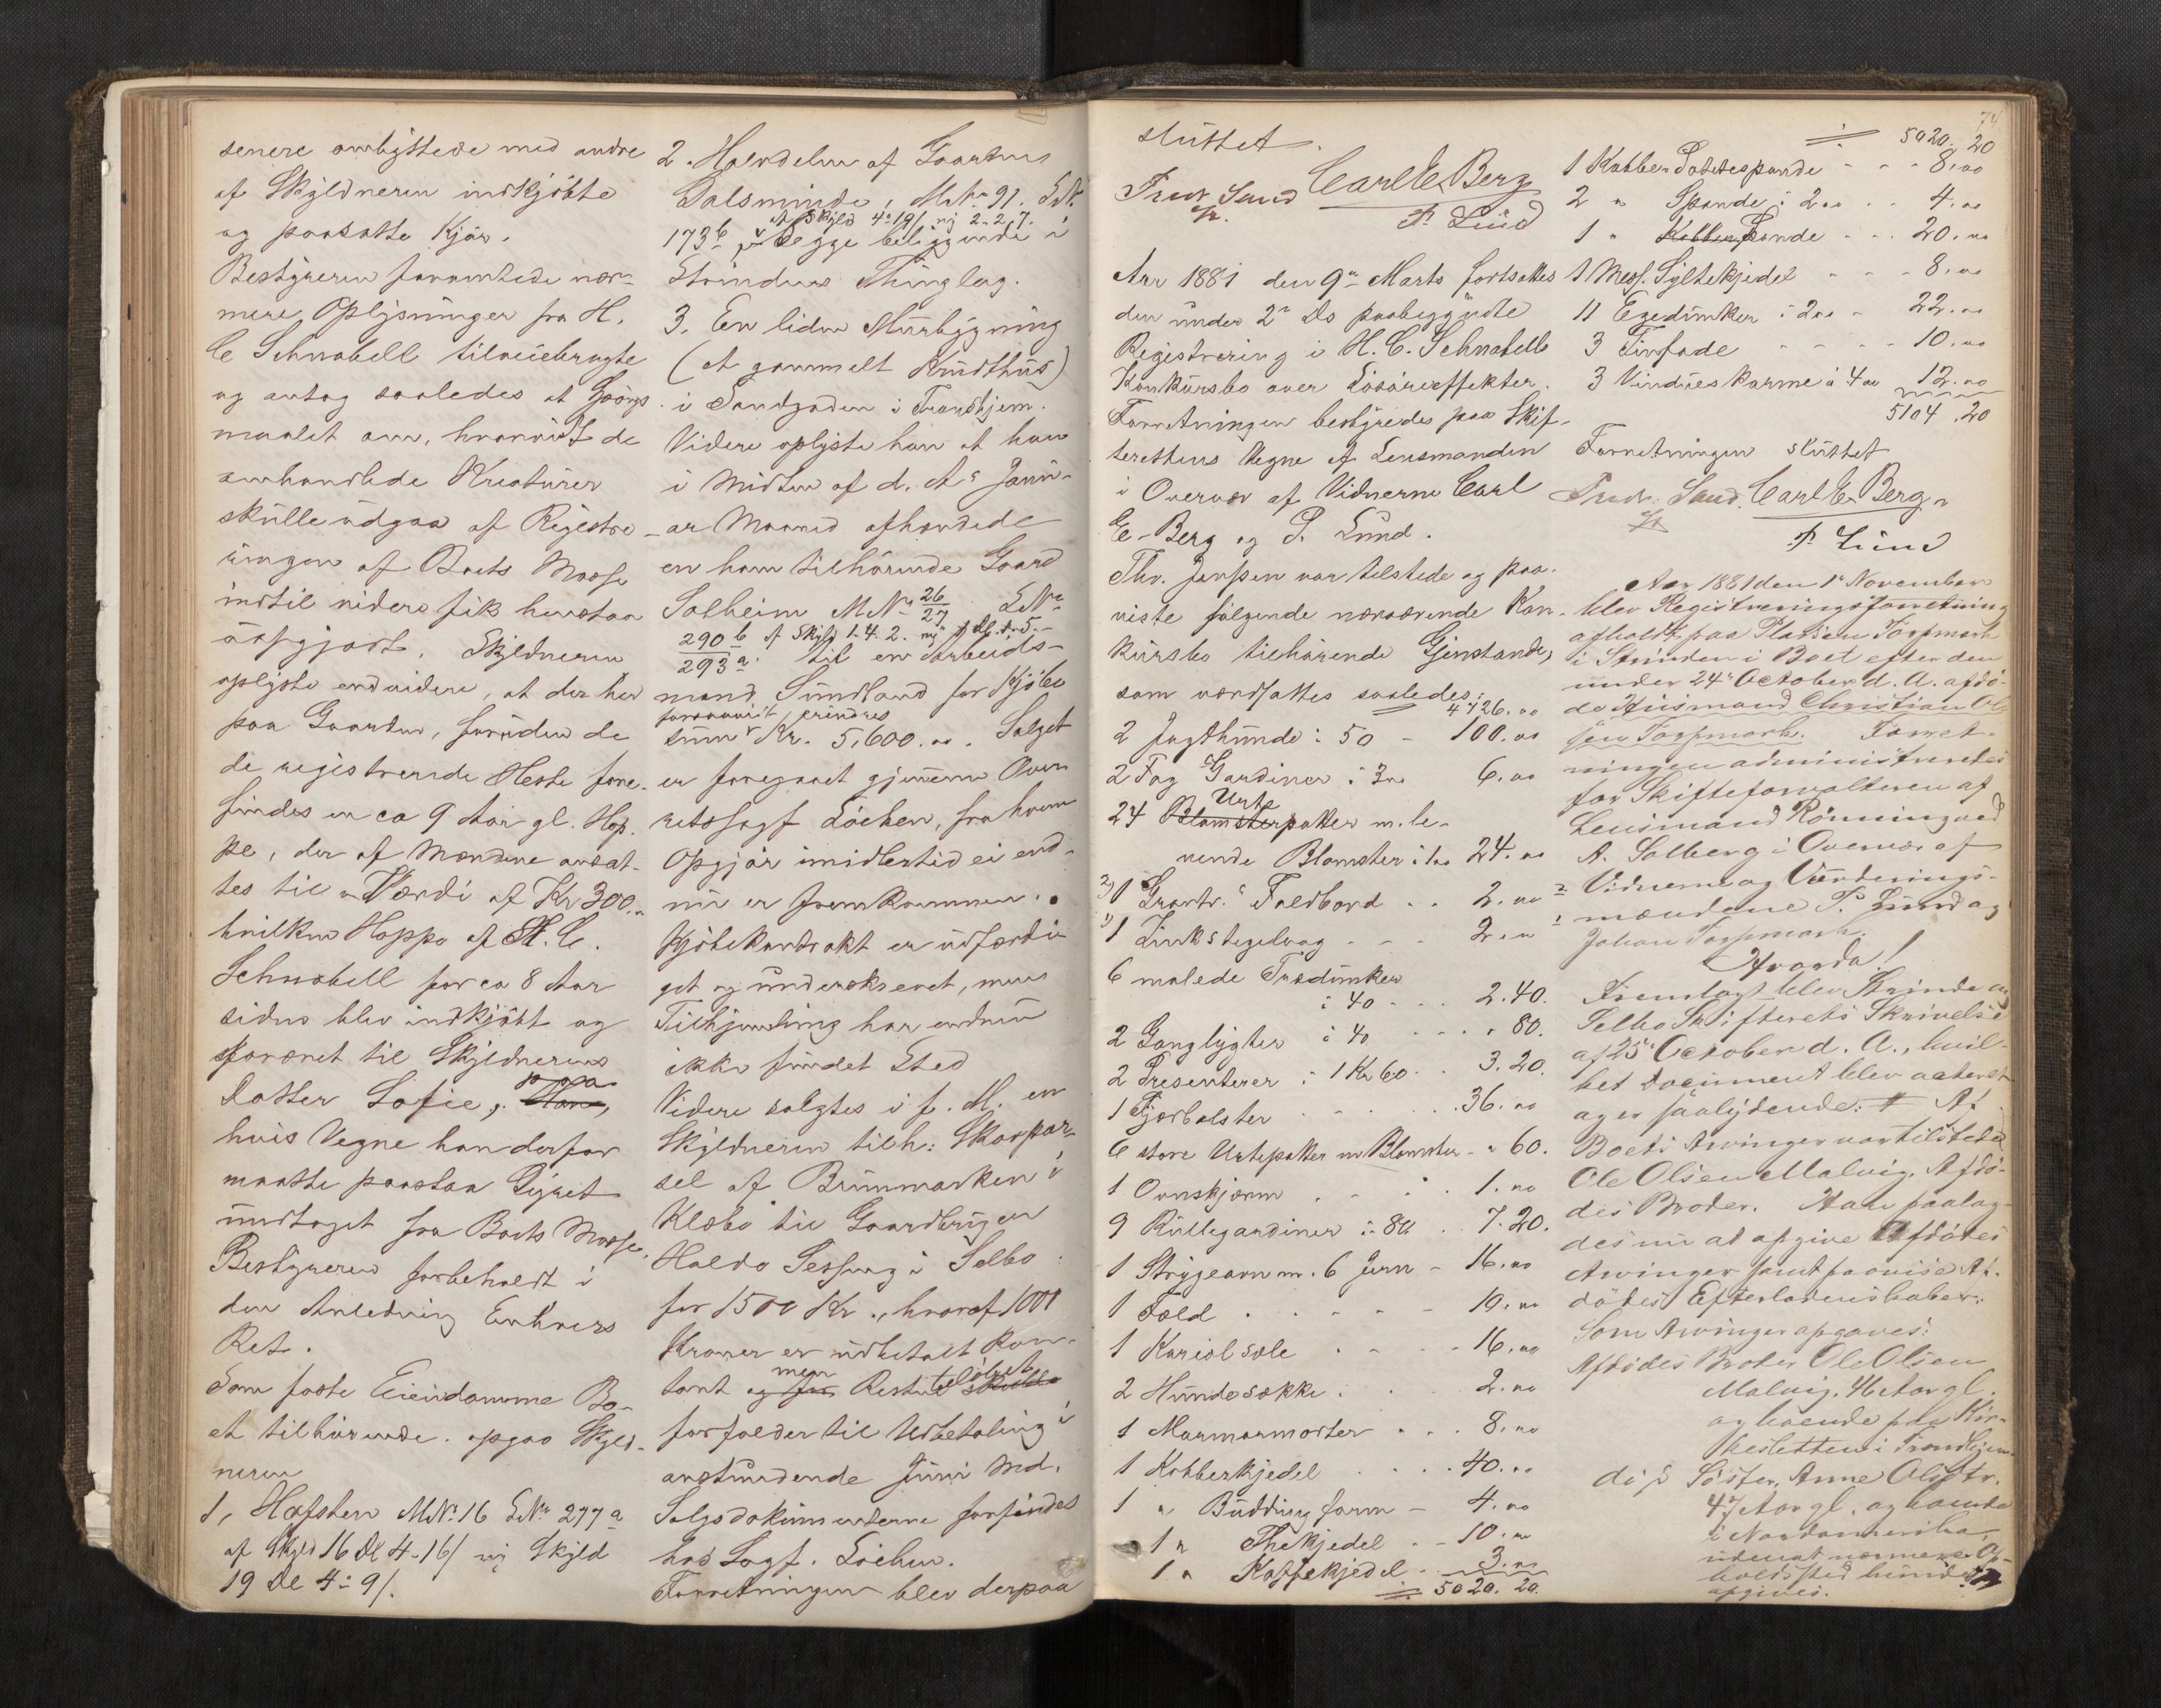 senere ombyttede med andre
af Skyldneren indkjöbte
og paasatte Kjör.
Bestyreren forventede nær-
mere Oplysninger fra H.
C Schnabell tilveiebragte
og antog saaledes at Spörgs
maalet om, hvorvidt de
omhandlede Kreaturer
skulle udgaa af Registre-
ringen af Boets Masse
indtil videre fik henstaa
uafgjort. Skyldneren
oplyste endvidere, at der her
paa Gaarden, foruden de
de registrerede Heste fore-
findes en ca 9 Aar gl. Hop-
pe, der af Mændene ansat-
tes til en Værdi af Kr 300..
hvilken Hoppe af H. C.
Schnabell for ca 8 Aar
siden blev indkjöbt og
foræret til Skyldnerens
Datter Sofie, paa
hvis Vegne han derfor
maatte paastaa Dyret
undtaget fra Boets Masse.
Bestyreren forbeholdt i
den Anledning Enhvers
Ret.
Som faste Eiendomme Bo-
et tilhörende opgav Skyld-
neren
1, Hofsten MNo 16 LNo 277a
af Skyld 16 Dl 4-16/ ny Skyld
19 Dl 4-9/.
2. Halvdelen af Gaarden
Dalsminde, MNo 91. LNo
af Skyld 4-19/ ny 2-2,7.
173b, begge beliggende i
Strindens Thinglag.
3. En liden Murbygning
(et gammelt Krudthus)
i Sandgaden i Trondhjem.
Videre oplyste han at han
i Midten af d. As Janu-
ar Maaned afhændede
en ham tilhörende Gaard
Solheim MNo 26/27 LNo
290b/293a af Skyld 1-4-2. til en Arbeids-
mand Sundland for Kjöbe
forsaavidt erindres
sum Kr. 5,600.00. Salget
er foregaaet gjennem Over
retssagf Löchen, fra hvem
Opgjör imidlertid ei end-
nu er fremkommen.
Kjöbekontrakt er udfærdi
get og underskrevet, men
Tilhjemling har endnu
ikke fundet Sted
Videre solgtes i f. M. en
Skyldneren tilh: Skovpar-
sel af Brunmarken i
Klæbo til Gaardbruger
Haldo i Selbo
for 1500 Kr., hvoraf 1000
Kroner er udbetalt kon-
tant og men Resten
forfalder til Udbetaling i
anstundende Juni Md.
Salgsdokumenterne forfindes
hos Sagf. Löchen.
Forretningen blev derpaa
74
sluttet.
Fredr Sand Carl E. Berg
P. Lund
Aar 1881 den 9de Marts fortsattes
den under 2den Ds paabegyndte
Registrering i H. C. Schnabells
Konkursbo over Lösöreeffekter.
Forretningen bestyredes paa Skif-
terettens Vegne af Lensmanden
i Overvær af Vidnerne Carl
E. Berg og P. Lund.
Thv. Jenssen var tilstede og paa-
viste fölgende nærværende Kon-
kursbo tilhörende Gjenstande,
som værdsattes saaledes:
4726.00
2 Jagthunde à 50 - 100.00
2 Fag Gardiner à 3.00 6.00
24 Urte Blomsterpotter m. le-
vende Blomster à 1.00 24.00
2) 1 Foldbord .. 2.00
1) 1 Zink - - 2.00
6 malede Trædunker
à 40 - .. 2.40.
2 Ganglygter à 40 .... " 80.
2 Presenterer à 1 Kr 60 .. 3.20.
1 Fjorbolster ..... 36.00
6 store Urtepotter m Blomster - " 60.
1 Ovnskjærm .... 1.00
9 Rullegardiner à 80 .. 7.20.
1 Strygeovn m. 6 Jern - 16.00
1 Fæld ..... 10.00
1 Kariolsæle .... 16.00
2 Hundesække .. 2.00
1 Marmormorter ... 8.00
1 Kobberkjedel .... 40.00
1 " Buddingform - 4.00
1 " Thekjedel .. 10.00
1 " Kaffekjedel 3.00
5020. 20.
5020. 20
1 Kobber Potetespande - - 8.00
2 " Spande à 2.00 .. 4.00
1 " Kobber Pande - - 20.00
1 Mess. Syltekjedel - - 8.00
11 Egedunker à 2.00 - 22.00
3 Tinfade - - - - 10.00
3 Vindueskarme à 4.00 12.00
5104.20
Forretningen sluttet
Fredr. Sand. Carl E. Berg.
P. Lund
Aar 1881 den 1e November
blev Registreringsforretning
afholdt paa Pladsen Torpmark
i Strinden i Boet efter den
under 24de October d. A. afdö-
de Husmand Christian Ol-
sen Torpmark. Forret-
ningen administreredes
for Skifteforvalteren af
Lensmand Rönning ved
A. Solberg i Overvær af
Vidnerne og Vurderings-
mændene P. Lund og
Johan Torpmark.
Hvorda!
Fremlagt blev Strinde og
Selbo Skifterets Skrivelse
af 25de October d. A., hvil-
ket Document blev acteret
og er saalydende: # Af
Boets Arvinger var tilstede
Ole Olsen Malvig, Afdö-
des Broder. Han paalag-
des nu at opgive Afdödes
Arvinger samt paavise Af-
dödes Efterladenskaber.
Som Arvinger opgaves:
Afdödes Broder Ole Olsen
Malvig, 46 Aar gl.
og boende paa
i Trondhjem
do. Söster, Anne Olsdtr.
47 Aar gl. og boende
i Nordamerika,
uden at nærmere Op-
holdssted kunde
opgives.